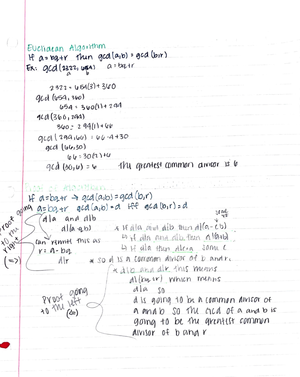 Euclidean Algorithm
If a=bq+r then gcd(a,b)=gcd(b,r)
Ex: gcd(2322, 654) a=bq+r
a b
2322 = 654(3)+360
gcd(654, 360)
654 = 360(1)+294
gcd(360, 294)
360 = 294(1)+66
gcd(294,66) = 66·4+30
gcd(66,30)
66=30(2)+6
gcd(30,6) = 6 the greatest common divisor is 6
If a=bq+r → gcd(a,b)=gcd(b,r)
a=bq+r gcd(a,b)=d iff gcd(b,r)=d
Proof going to the right (⇒)
d|a and d|b
d|(a-qb)
can rewrite this as
r=a-bq
d|r
* If d|a and d|b then d|(a-cb)
* so d is a common divisor of b and r.
Proof going to the left (⇐)
* d|b and d|r this means
d|(bq+r) which means
d|a so
d is going to be a common divisor of
a and b so the GCD of a and b is
going to be the greatest common
divisor of b and r